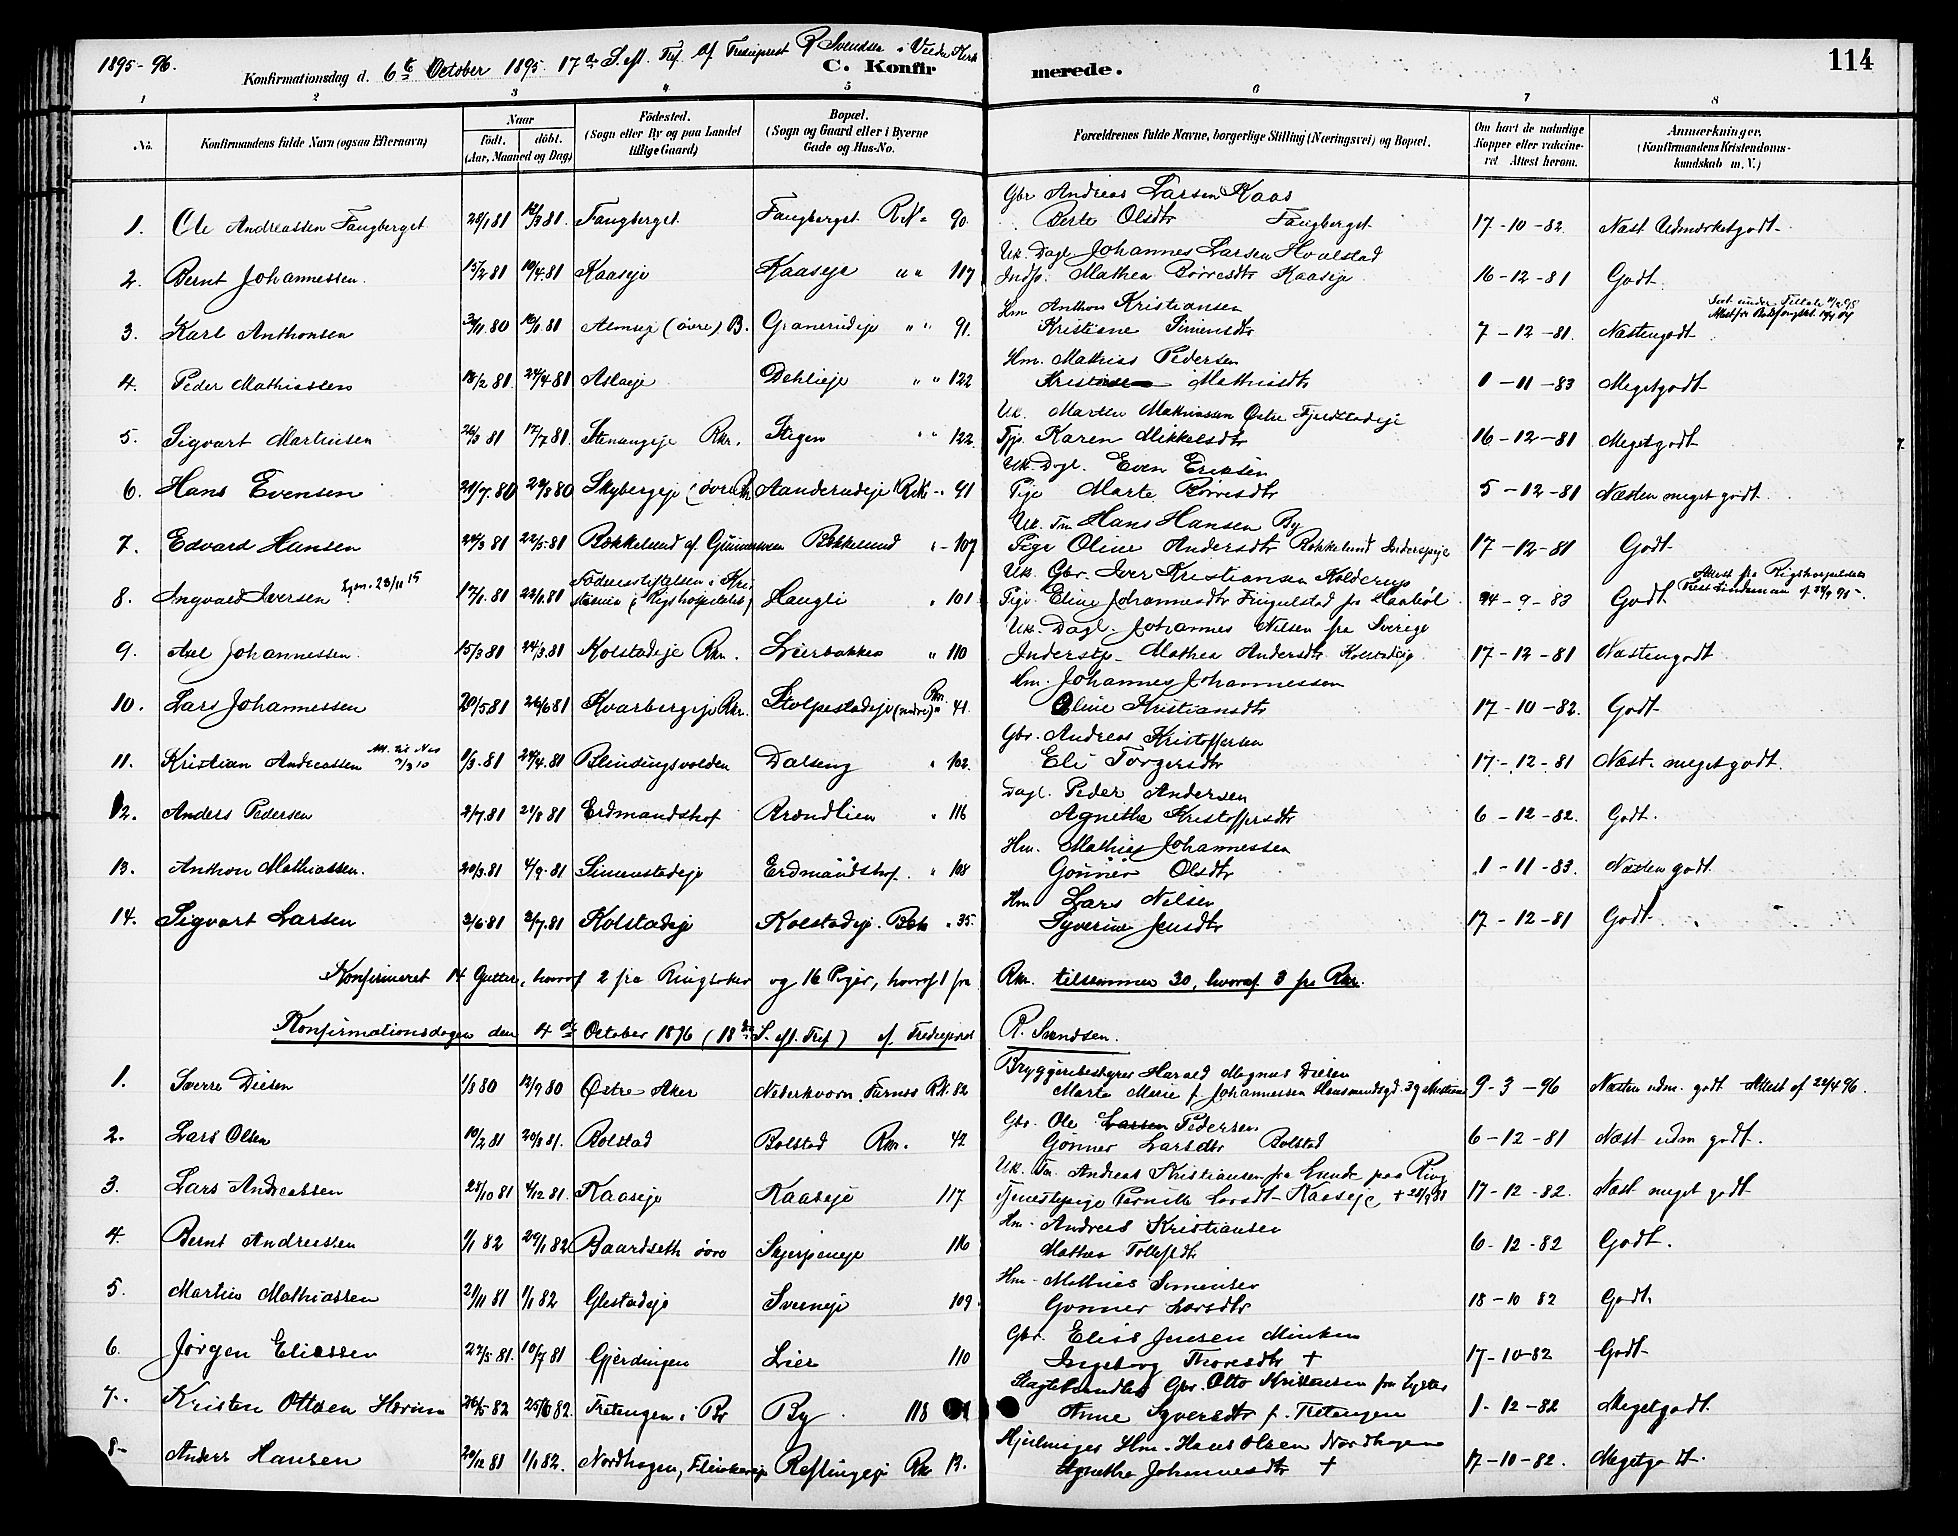 1895-96.
Konfirmationsdag d. 6te October 1895 17de S. eft. Tref. af Fredieprest R Svendsen i Veldre Kirke
C. Konfirmerede.
114
1 2 3 4 5 6 7 8
No. Konfirmandens fulde Navn (ogsaa Efternavn) Naar Födt. döbt. (Aar, Maaned og Dag) Födested. (Sogn eller By og paa Landet tillige Gaard) Bopæl. (Sogn og Gaard eller i Byerne Gade og Hus-No. Forældrenes fulde Navne, borgerlige Stilling (Næringsvei) og Bopæl. Om havt de naturlige Kopper eller vaccineret Attest herom. Anmærkninger. (Konfirmandens Kristendomskundskab m. V.)
1. Ole Andreassen Fangberget 28/1 81 13/3 81. Fangberget Fangberget R No 90. Gbr Andreas Larsen Kaas
Berte Olsdtr Fangberget 17-10-82. Næst Udmærketgodt
2. Bernt Johannessen 13/2 81 10/4 81 Kaaseje Kaaseje " " 117 Uk. Dagl. Johannes Larsen Hvalstad
Indp. Mathea Børresdtr Kaaseje 16-12-81 Godt.
3. Karl Anthonsen 30/11 80 16/1 81 Almeje (övre) B. Graneriudeje " " 91. Hm Anthon Kristiansen
Kristiane Simensdtr 7-12-81. Næstengodt
4. Peder Mathiassen 18/2 81. 24/4 81 Aslaeje Dehlieje " " 122 Hm. Mathias Pedersen
Mathiasdtr 1-11-83 Megetgodt
5. Sigvart Martinsen 26/3 81 17/7 81 Stenangeje Rkr. Stigen " " 122 Uk. Martin Mathiassen Østre Fjeldstadeje
Tjp. Karen Mikkelsdtr 16-12-81 Megetgodt
6. Hans Evensen 21/7 80 29/8 80 Skybergeje (övre) Rkr Aanderudeje Rkr - 91 Uk. Dagl. Even Eriksen
Pige Marte Børresdtr 5-12-81 Næsten meget godt
7. Edvard Hansen 24/3 81 22/5 81 Bokkelund af Gunnersveen Bokkelund " - 107 Uk. Tm Hans Hansen By
Pige Oline Andersdtr Bokkelund Inderstpige 17-12-81 Godt
8. Ingvald Iversen Lysn. 23/11 15 17/1 81 22/1 81 Födselsstiftelsen i Kristiania (Rigshospitalet) Haugli " 101. Uk. Gbr. Iver Kristiansen Kolderup
Pige. Eline Johannesdtr Fingulstad fra Haabøl. 24-9-83 Godt Attest fra Rigshospitalets Prest Lindeman af 24/9 95
9. Axel Johannessen. 15/3 81 24/3 81 Kolstadeje Rkr. Lierbakken " 110 Uk. Dagl. Johannes Nilsen fra Sverige
Inderstp. Mathea Andersdtr Kolstadeje 17-12-81 Næstengodt
10. Lars Johannessen 20/5 81 26/6 81 Kvarbergeje Rkr. Stolpestadeje (nedre) Rkr " 41. Hm. Johannes Johannessen
Oline Kristiansdtr 17-10-82. Godt
11. Kristian Andreassen Att. til Nes 7/3 10 1/3. 81 24/4. 81 Blindingsvolden Dalseng " 102. Gbr. Andreas Kristoffersen
Eli Torgersdtr 17-12-81 Næst. megetgodt.
12. Anders Pedersen 2/7 81 21/8 81 Erdmandshof Brændlien " 116 Dagl. Peder Andersen
Agnethe Kristoffersdtr 6-12-82. Godt.
13. Anthon Mathiassen. 20/3. 81 4/9. 81 Simenstadeje Erdmandshof. " 108 Hm. Mathias Johannessen
Gunner Olsdtr 1-11-83. Næsten godt.
14. Sigvart Larsen 3/6. 81 2/7. 81 Kolstadeje Kolstadeje. Rkr " 35. Hm Lars Nilsen
Syverine Jensdtr 17-12-81 Godt
Konfirmeret 14 Gutter, hvoraf 2 fra Ringsaker og 16 Piger, hvoraf 1 fra Rkr. tilsammen 30, hvoraf 3 fra Rkr.
Konfirmationsdagen den 4de October 1896 (18de S. eft. Tref) af Fredieprest R. Svendsen.
1. Sverre Diesen 1/8 80 12/9 80 Østre Aker Nederkvern Furnes Rk. 82 Bryggeribestyrer Harald Magnus Diesen
Marta Marie f. Johannessen 9-3-96 Næsten udm. godt Attest af 22/4 96.
2. Lars Olsen 10/2 81 20/3 81. Bolstad Bolstad Rkr. 42 Gbr. Ole Larsen Pedersen
Gønner Larsdtr Bolstad 6-12-81 Næst udm godt.
3. Lars Andreassen 28/10 81 4/12 81. Kaaseje Kaaseje 117 Uk. Tm. Andreas Kristiansen fra Lunde paa Ring
Tjenestepige Pernille Larsdtr Kaaseje + 28/9 88 17-12-82. Næst meget godt
4. Bernt Andreassen 1/1 82 29/1 82 Baardseth övre Skjerpeneje 116 Hm. Andreas Kristiansen
Mathea Tollefsdtr 6-12-82 Godt.
5. Martin Mathiassen 21/11 81 1/1 82 Glestadeje Sveeneje 109 Hm. Mathias Simensen
Gønner Larsdtr 18-10 82 Godt.
6. Jørgen Eliassen 22/5 81. 10/7 81 Gjerdingen Lier 110 Gbr. Elias Jensen Minken
Ingeborg Thoresdtr + 17-10-82 Godt
7. Kristen Ottosen Horum 26/5 82 25/6 82. Fretengen i Br By 118 Gbr. Otto Kristensen fra
Anne Syversdtr f. Tretengen 1-12-82 Megetgodt.
8. Anders Hansen 20/12 81 1/1 82. Nordhagen, Reflingeje Rkr 12. Hm. Hans Olsen Nordhagen
Agnethe Johannesdtr + 17-10-82. Megetgodt.